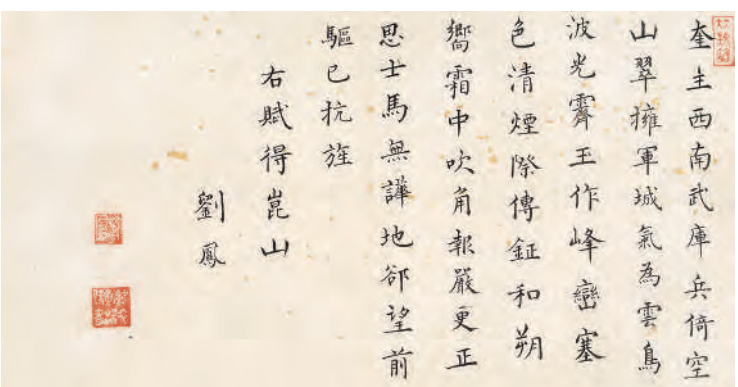 奎主西南武庫兵倚空
山翠擁軍城氣為雲鳥
波光霽玉作峰巒塞
色清煙際傳鉦和朔
嚮霜中吹角報嚴更正
思士馬無譁地郤望前
驅已抗旌
右賦得崑山
劉鳳